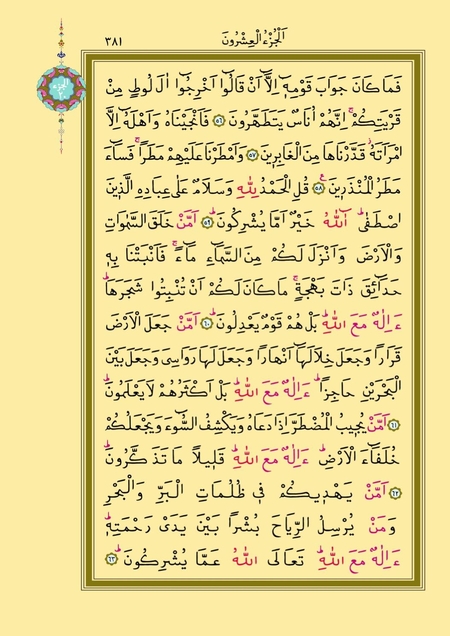 اَلْجُزْءُ الْعِشْرُونَ ٣٨١
فَمَا كَانَ جَوَابَ قَوْمِهٖٓ اِلَّٓا اَنْ قَالُٓوا اَخْرِجُٓوا اٰلَ لُوطٍ مِنْ
قَرْيَتِكُمْۚ اِنَّهُمْ اُنَاسٌ يَتَطَهَّرُونَ ﴿٥٦﴾ فَاَنْجَيْنَاهُ وَاَهْلَهُٓ اِلَّا
امْرَاَتَهُۘ قَدَّرْنَاهَا مِنَ الْغَابِرٖينَ ﴿٥٧﴾ وَاَمْطَرْنَا عَلَيْهِمْ مَطَرًاۚ فَسَٓاءَ
مَطَرُ الْمُنْذَرٖينَ۟ ﴿٥٨﴾ قُلِ الْحَمْدُ لِلّٰهِ وَسَلَامٌ عَلٰى عِبَادِهِ الَّذٖينَ
اصْطَفٰىۜ آٰللّٰهُ خَيْرٌ اَمَّا يُشْرِكُونَۜ ﴿٥٩﴾ اَمَّنْ خَلَقَ السَّمٰوَاتِ
وَالْاَرْضَ وَاَنْزَلَ لَكُمْ مِنَ السَّمَٓاءِ مَٓاءًۚ فَاَنْبَتْنَا بِهٖ
حَدَٓائِقَ ذَاتَ بَهْجَةٍۚ مَا كَانَ لَكُمْ اَنْ تُنْبِتُوا شَجَرَهَاۜ
ءَاِلٰهٌ مَعَ اللّٰهِۜ بَلْ هُمْ قَوْمٌ يَعْدِلُونَۜ ﴿٦٠﴾ اَمَّنْ جَعَلَ الْاَرْضَ
قَرَارًا وَجَعَلَ خِلَالَهَٓا اَنْهَارًا وَجَعَلَ لَهَا رَوَاسِيَ وَجَعَلَ بَيْنَ
الْبَحْرَيْنِ حَاجِزًاۜ ءَاِلٰهٌ مَعَ اللّٰهِۜ بَلْ اَكْثَرُهُمْ لَا يَعْلَمُونَۜ
﴿٦١﴾ اَمَّنْ يُجٖيبُ الْمُضْطَرَّ اِذَا دَعَاهُ وَيَكْشِفُ السُّٓوءَ وَيَجْعَلُكُمْ
خُلَفَٓاءَ الْاَرْضِۜ ءَاِلٰهٌ مَعَ اللّٰهِۜ قَلٖيلًا مَا تَذَكَّرُونَۜ
﴿٦٢﴾ اَمَّنْ يَهْدٖيكُمْ فٖي ظُلُمَاتِ الْبَرِّ وَالْبَحْرِ
وَمَنْ يُرْسِلُ الرِّيَاحَ بُشْرًا بَيْنَ يَدَيْ رَحْمَتِهٖۜ
ءَاِلٰهٌ مَعَ اللّٰهِۜ تَعَالَى اللّٰهُ عَمَّا يُشْرِكُونَۜ ﴿٦٣﴾